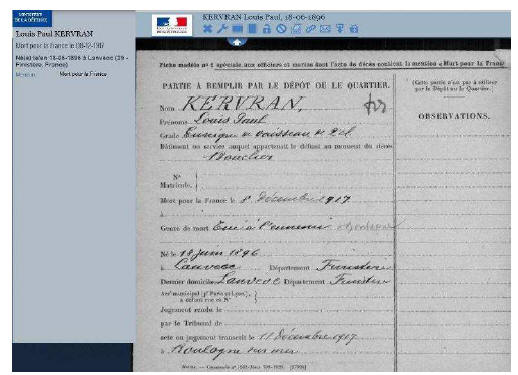 MINISTÈRE
DE LA DÉFENSE
Louis Paul KERVRAN
Mort pour la france le 08-12-1917
Né(e) le/en 18-06-1896 à Lanveoc (29 -
Finistère, France)
Mention Mort pour la France
KERVRAN Louis Paul, 18-06-1896
Fiche modèle n° 1 spéciale aux officiers et marins dont l'acte de décès contient la mention « Mort pour la France
PARTIE À REMPLIR PAR LE DÉPÔT OU LE QUARTIER.
(Cette partie n'est pas à utiliser
par le Dépôt ou le Quartier.)
OBSERVATIONS.
Nom KERVRAN,
Prénoms Louis Paul
Grade Enseigne de vaisseau de 2 cl
Bâtiment ou service auquel appartenait le défunt au moment du décès
Bouclier
N°
Matricule.
Mort pour la France le 8 Décembre 1917
à
Genre de mort Tué à l'ennemi
Né le 18 Juin 1896
à Lanveoc Département Finistère
Dernier domicile Lanveoc Département Finistère
Arr' municipal (pr Paris et Lyon),
à défaut rue et N°
Jugement rendu le
par le Tribunal de
acte ou jugement transcrit le 11 Décembre 1917
à Boulogne sur mer